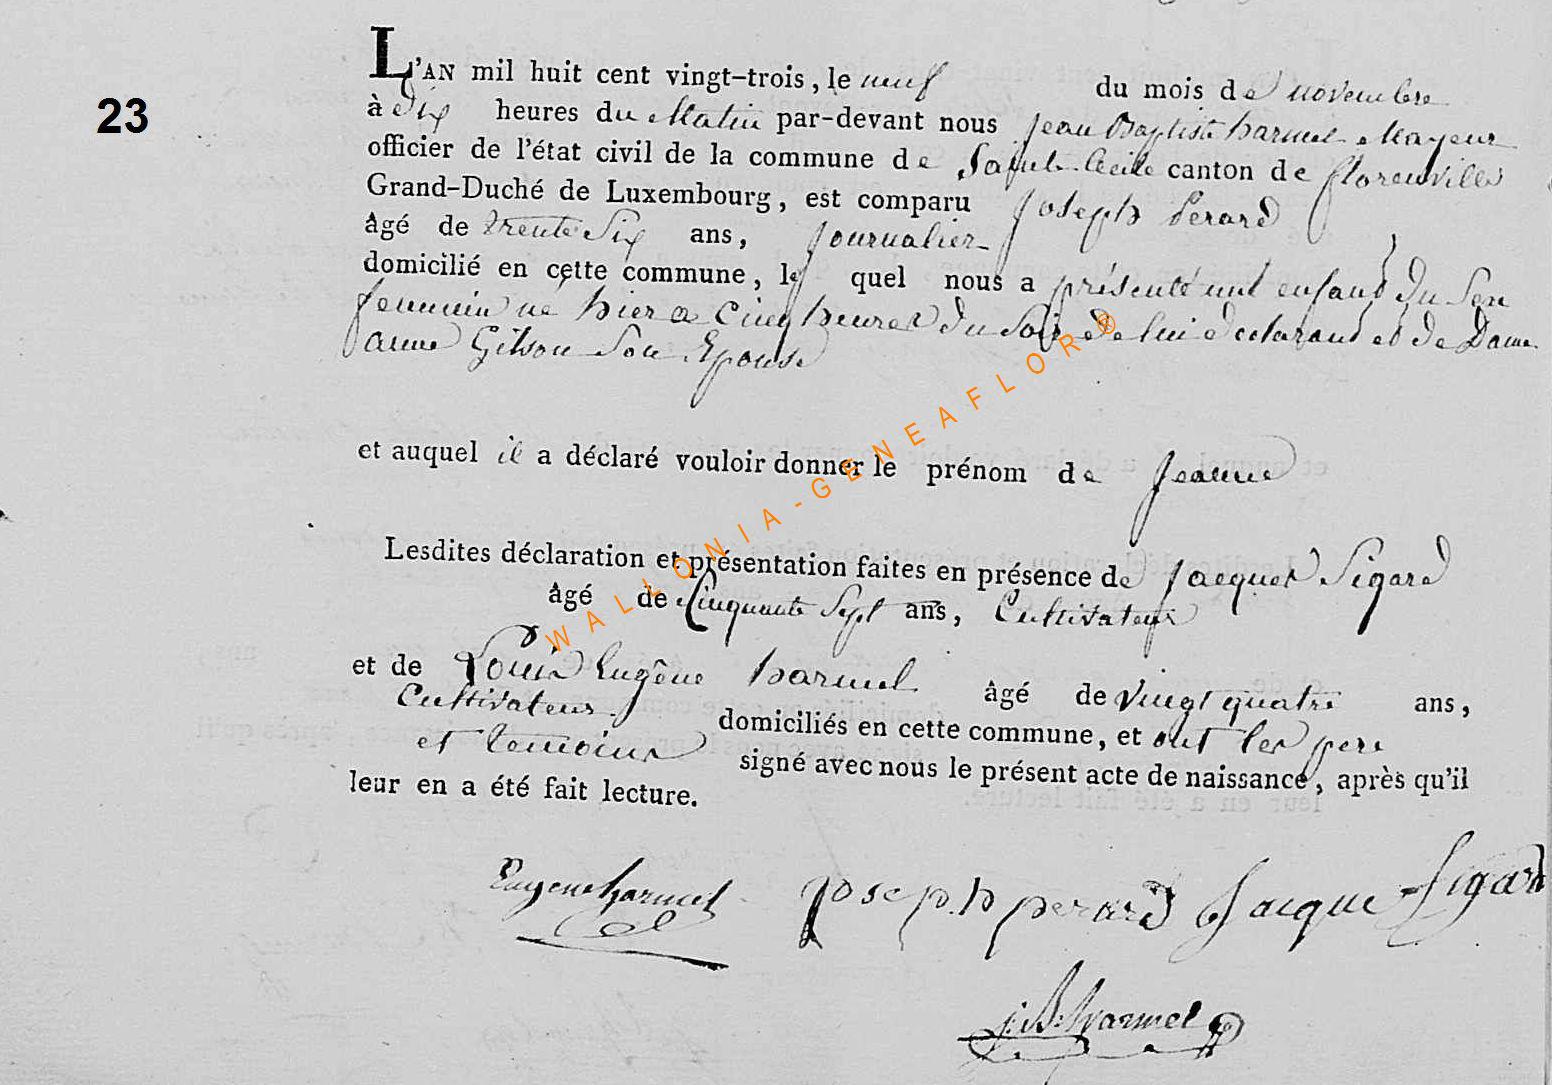 23
L'AN mil huit cent vingt-trois, le neuf du mois de novembre
à dix heures du Matin par-devant nous Jean Baptiste harmel Mayeur
officier de l'état civil de la commune de Sainte Cecile canton de florenville
Grand-Duché de Luxembourg, est comparu Joseph Perard
âgé de trente Six ans, Journalier
domicilié en cette commune, le quel nous a présenté une enfant du Sexe
feminin né hier a Cinq heures du Soir de lui declarant et de Dame
anne Gilson Son Epouse
et auquel il a déclaré vouloir donner le prénom de Jeanne
Lesdites déclaration et présentation faites en présence de Jacques Sigard
âgé de Cinquante Sept ans, Cultivateur
et de Louis Eugêne harmel âgé de vingt quatre ans,
Cultivateur domiciliés en cette commune, et ont les pere
et temoins signé avec nous le présent acte de naissance, après qu'il
leur en a été fait lecture.
Eugene harmel Joseph perard Jacque Sigard
j: B: harmel
WALLONIA-GENEAFLOR®